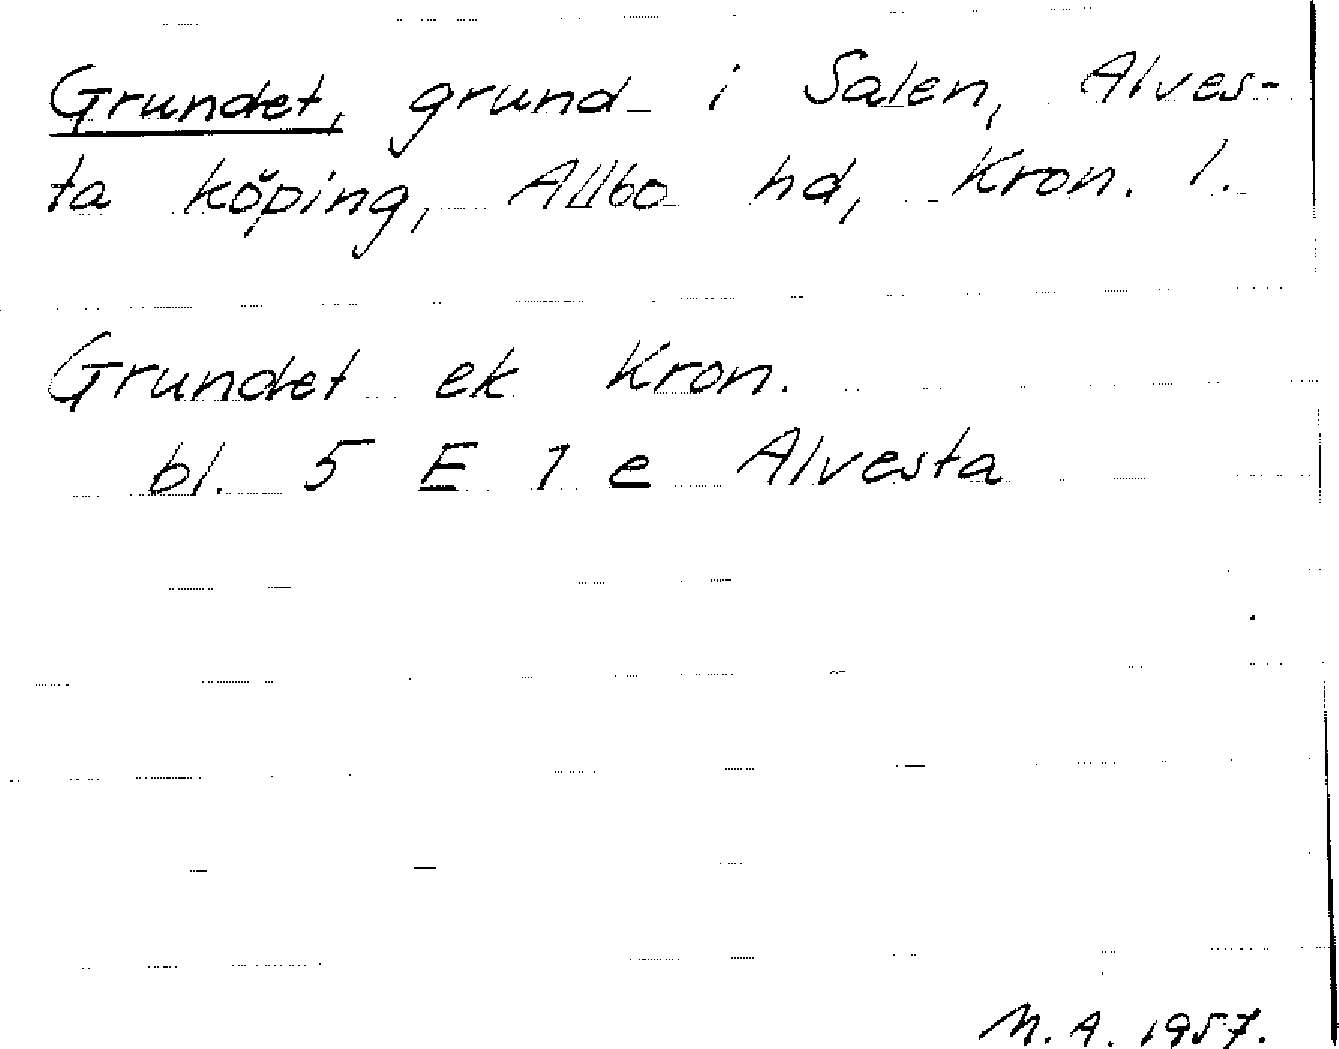 Grundet, grund i Salen, Alves-
ta köping, Allbo hd, Kron. l.
Grundet ek Kron.
bl. 5 E 1 e Alvesta
M. A. 1957.